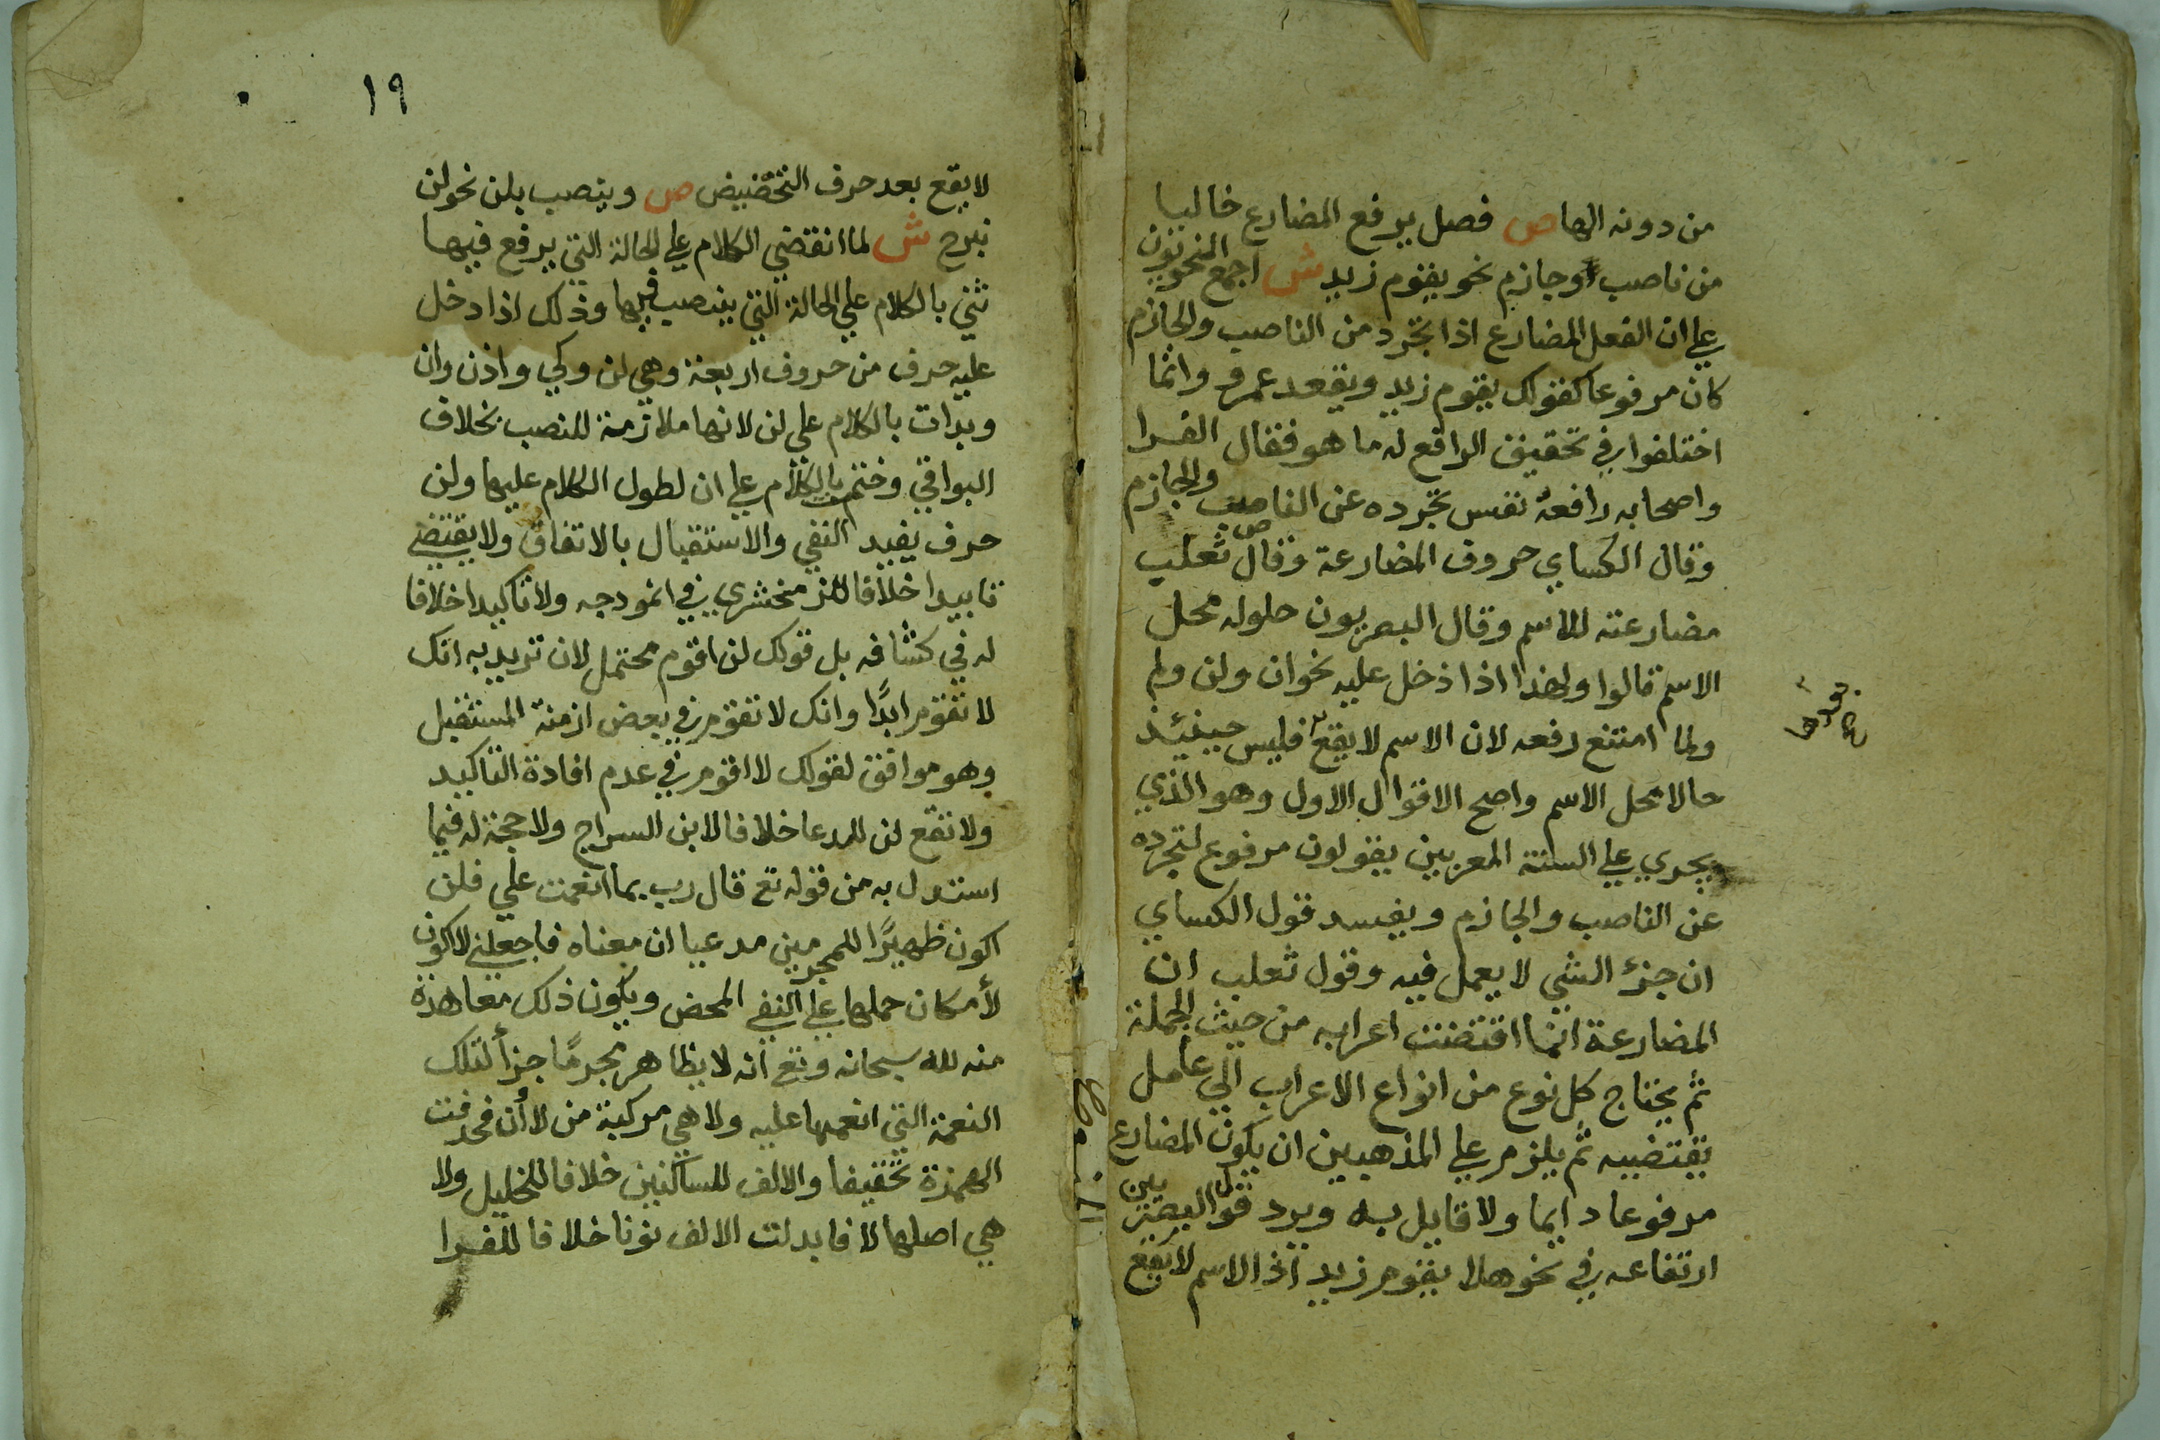 من دونه الها ص فصل يرفع المضارع خاليا
من ناصب وجازم نحو يقوم زيد ش اجمع النحويون
على ان الفعل المضارع اذا تجرد من الناصب والجازم
كان مرفوعا كقولك يقوم زيد ويقعد عمرو وانما
اختلفوا في تحقيق الرافع له ما هو فقال الفرا
واصحابه رافعه نفس تجرده عن الناصب والجازم
وقال الكساي حروف المضارعة وقال ثعلب
مضارعته للاسم وقال البصريون حلوله محل
الاسم قالوا ولهذا اذا دخل عليه نحو ان ولن ولم
ولما امتنع رفعه لان الاسم لا يقع فليس حينئذ
بعدها
صح
حالا محل الاسم واصح الاقوال الاول وهو الذي
يجري على السنة المعربين يقولون مرفوع لتجرده
عن الناصب والجازم ويفسد قول الكساي
ان جزؤ الشي لا يعمل فيه وقول ثعلب ان
المضارعة انما اقتضت اعرابه من حيث الجملة
ثم يحتاج كل نوع من انواع الاعراب الي عامل
يقتضيه ثم يلزم على المذهبين ان يكون المضارع
مرفوعا دايما ولا قايل به ويرد قول البصريين
ارتفاعه في نحو هلا يقوم زيد اذ الاسم لا يقع
١٩
لا يقع بعد حرف التخضيض ص وينصب بلن نحو لن
نبرح ش لما انقضي الكلام علي الحالة التي يرفع فيها
ثني بالكلام علي الحالة التي ينصب فيها وذلك اذا دخل
عليه حرف من حروف اربعة وهي لن وكي واذن وان
وبدات بالكلام على لن لانها ملازمة للنصب بخلاف
البواقي وختم بالكلام على ان لطول الكلام عليها ولن
حرف يفيد النفي والاستقبال بالاتفاق ولا يقتضي
تابيدا خلافا للزمخشري في انموذجه ولا تاكيدا خلافا
له في كشافه بل قولك لن اقوم محتمل لان تريد به انك
لا تقوم ابدًا وانك لا تقوم في بعض ازمنة المستقبل
وهو موافق لقولك لا اقوم في عدم افادة التاكيد
ولا تقع لن للدعا خلافا لابن السراج ولا حجة له فيما
استدل به من قوله تع قال رب بما انعمت علي فلن
اكون ظهيرًا للمجرمين مدعيا ان معناه فاجعلني لا اكون
لأمكان حملها على النفي المحض ويكون ذلك معاهدة
منه لله سبحانه وتع ان لا يظاهر مجرمًا جزأ لتلك
النعمة التي انعمها عليه ولا هي مركبة من لا أن فحذفت
الهمزة تخفيفا والالف للساكنين خلافا للخليل ولا
هي اصلها لا فابدلت الالف نونا خلافا للفرا